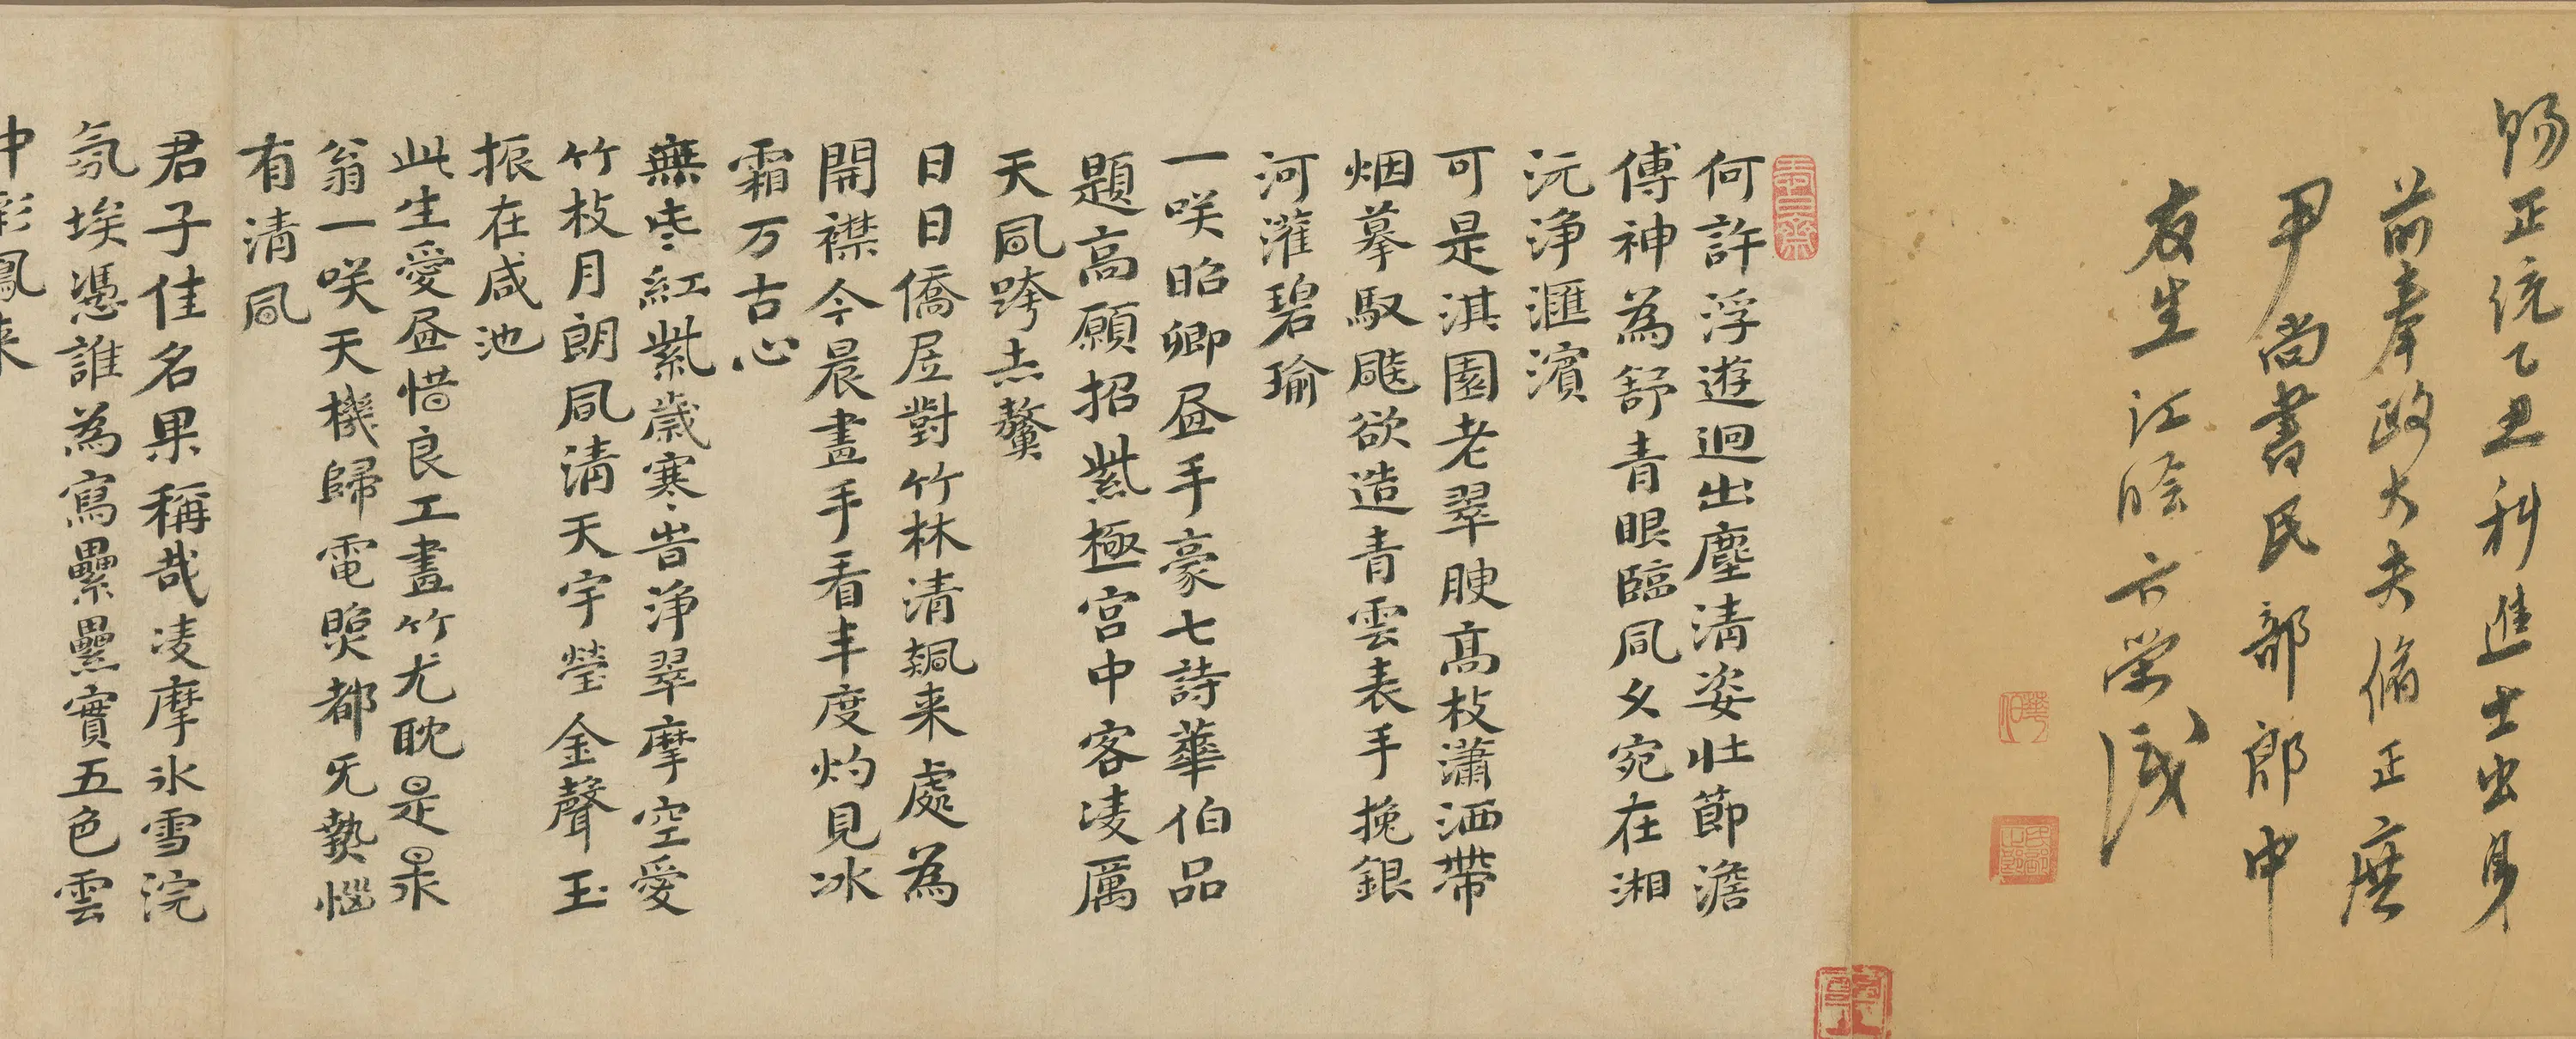 賜正統乙丑科進士出身
前奉政大夫脩正庶
尹尚書民部郎中
友生江陰卞榮識
何許浮遊迥出塵清姿壯節澹
傳神為舒青眼臨風久宛在湘
沅淨滙濱
可是淇園老翠腴高枝瀟洒帶
烟摹馭飈欲造青雲表手挽銀
河灌碧瑜
一咲昭卿昼手豪七詩華伯品
題高願招紫極宮中客凌厲
天風跨赤鰲
日日僑居對竹林清飆来處為
開襟今晨畫手看丰度灼見冰
霜万古心
無些紅紫歲寒岑淨翠摩空愛
竹枝月朗風清天宇瑩金聲玉
振在咸池
此生愛昼惜良工畫竹尤耽是杲
翁一咲天機歸電煚都旡熱惱
有清風
君子佳名果稱哉凌摩冰雪浣
氛埃憑誰為寫纍纍實五色雲
中彩鳳来